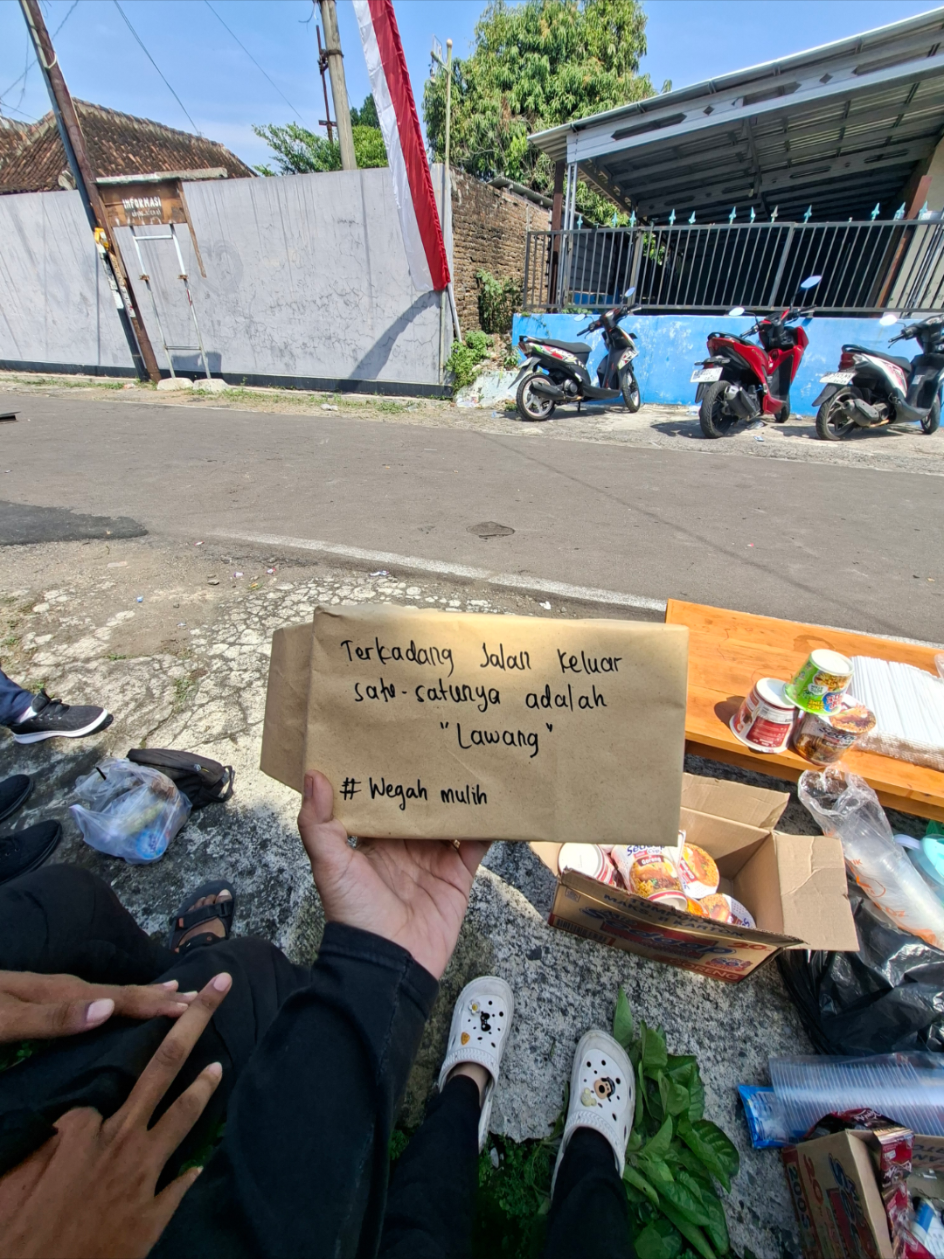 INFORMASI
Terkadang Jalan keluar
satu-satunya adalah
"Lawang"
# Wegah mulih